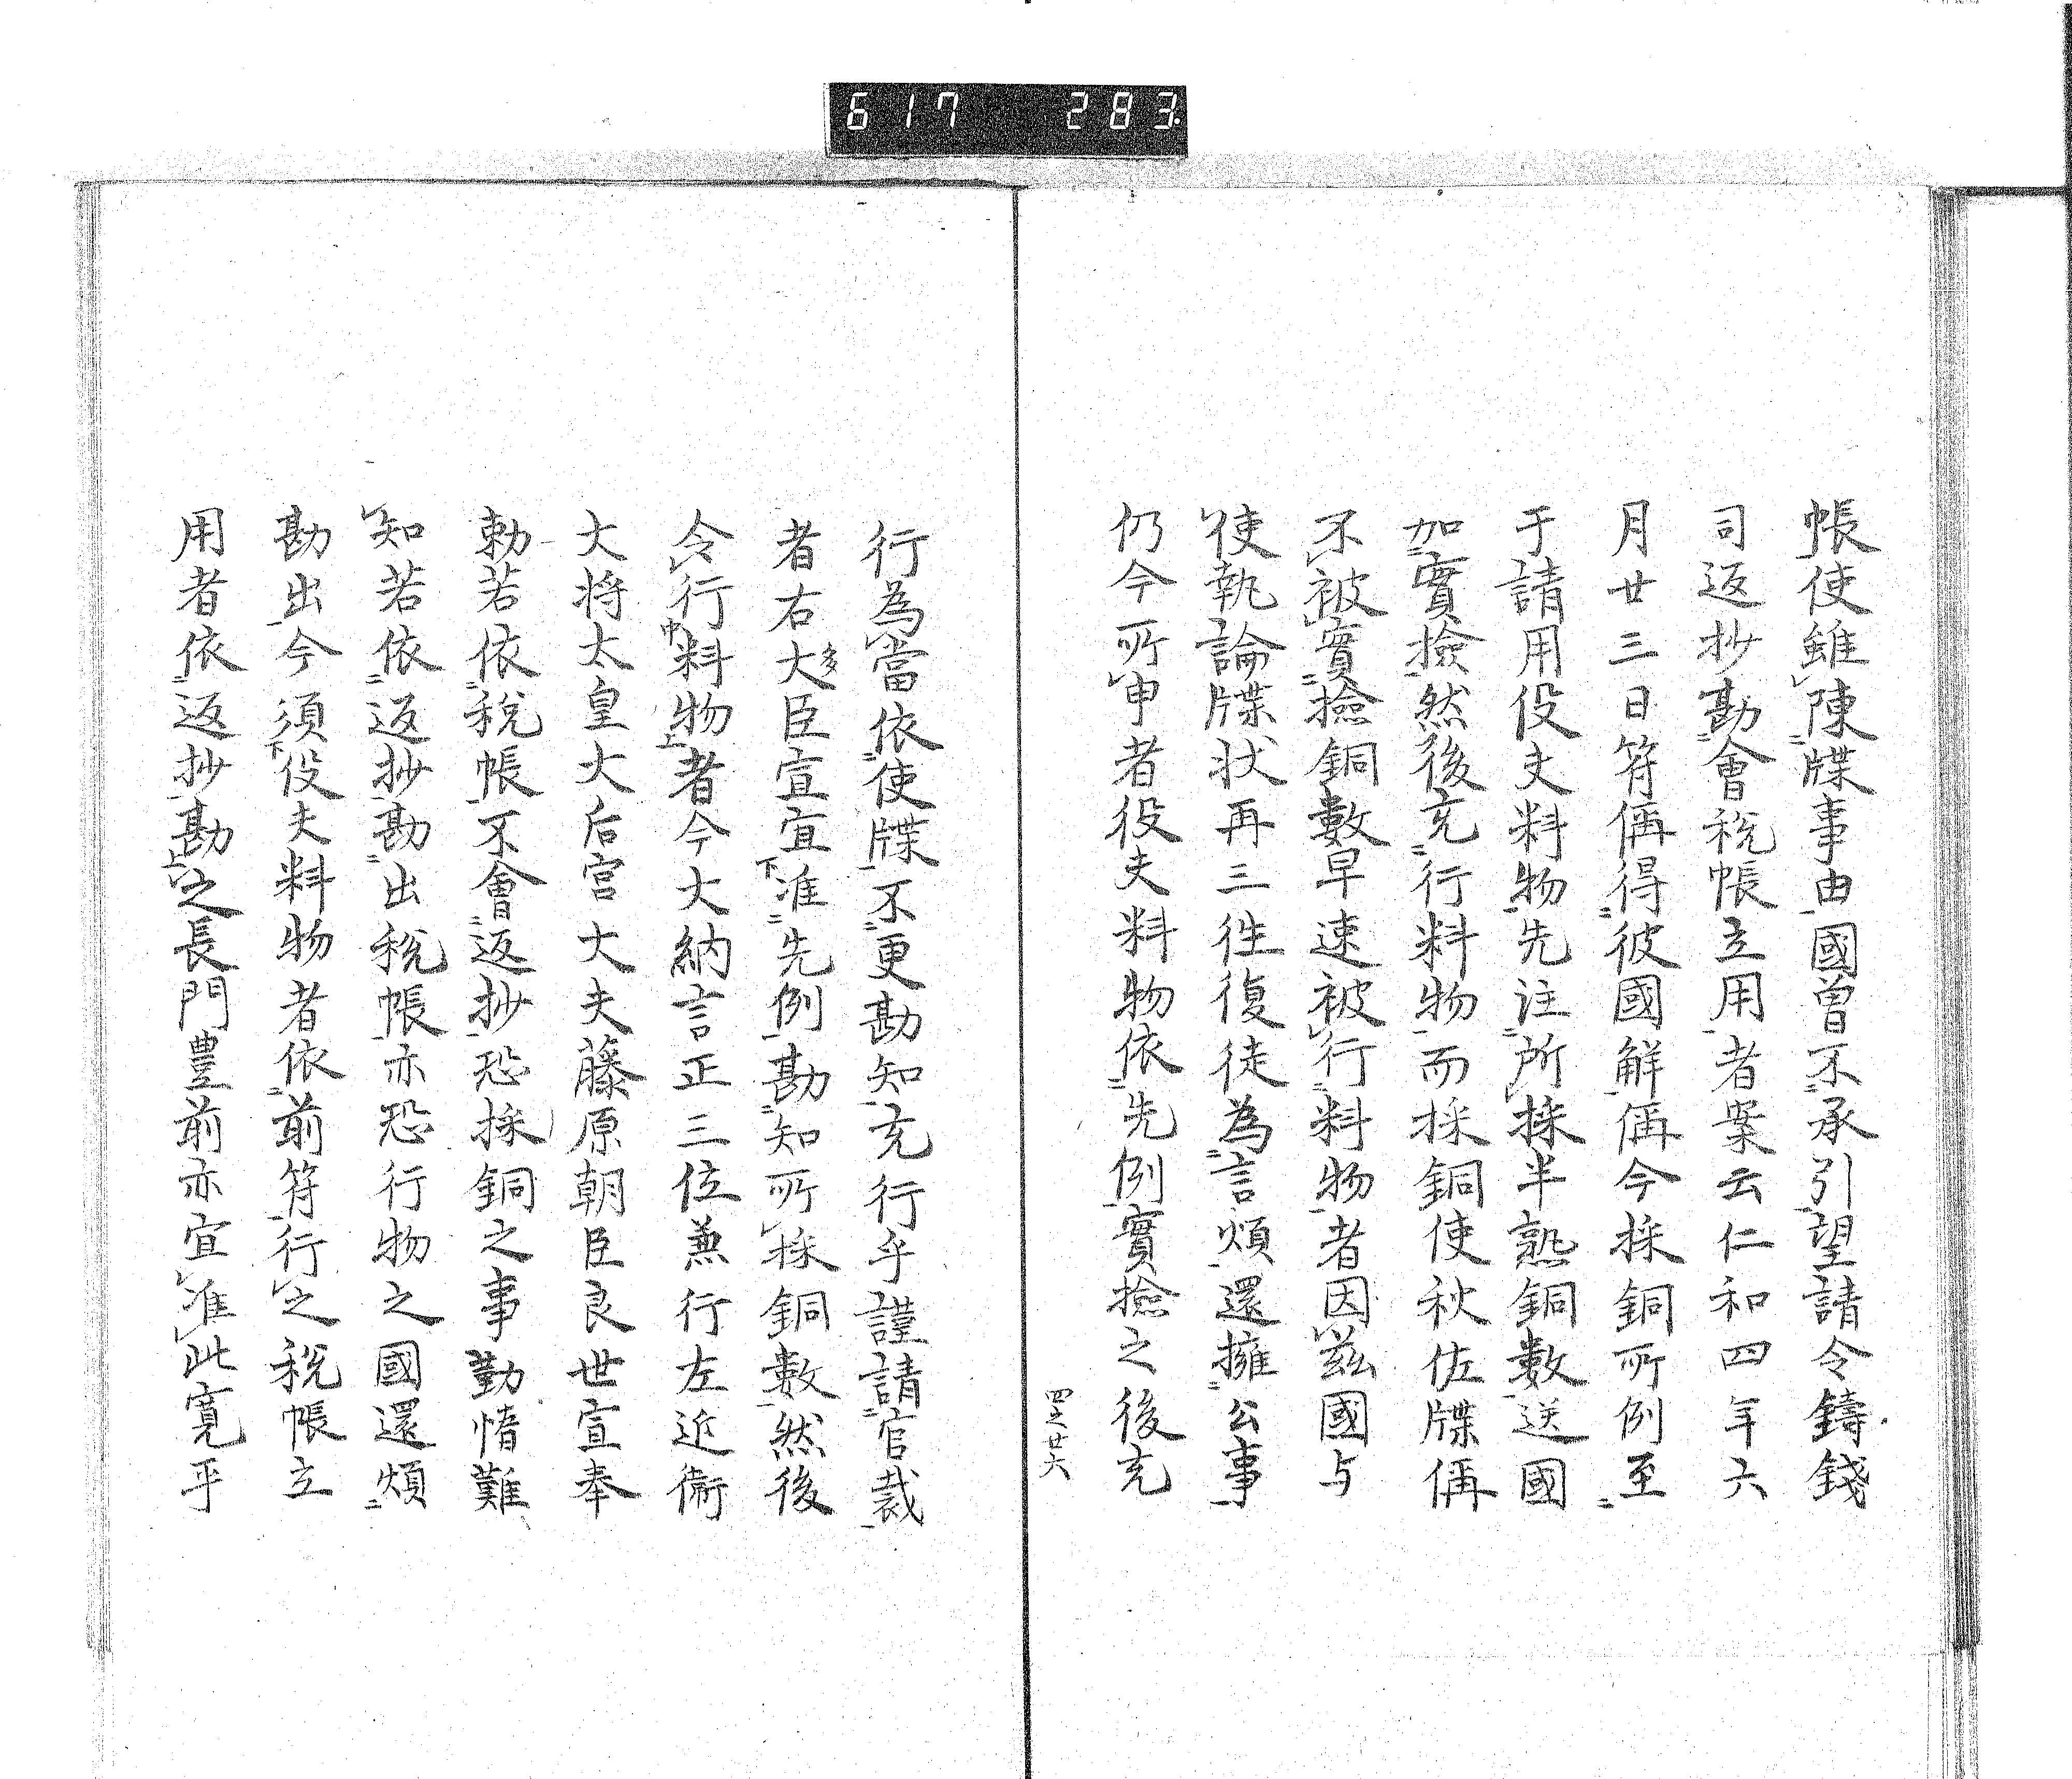 617 283
帳使雖陳牒事由國曽不承引望請令鑄錢
司返抄勘會税帳立用者案云仁和四年六
月廿三日符偁得彼國解偁今採銅所例至
于請用役夫料物先注所採半熟銅數送國
加實撿然後充行料物而採銅使秋佐牒偁
不被實撿銅數早速被行料物者因玆國与
使執論牒状再三徃復徒為言煩還擁公事
仍今所申者役夫料物依先例實撿之後充
四之廿六
行為當依使牒不更勘知充行乎謹請官裁
者右大臣宣宜准先例勘知所採銅數然後
令行料物者今大納言正三位兼行左近衛
大将太皇大后宮大夫藤原朝臣良世宣奉
勅若依税帳不會返抄恐採銅之事勤惰難
知若依返抄勘出税帳亦恐行物之國還煩
勘出今須役夫料物者依前符行之税帳立
用者依返抄勘之長門豊前亦宜准此寛平